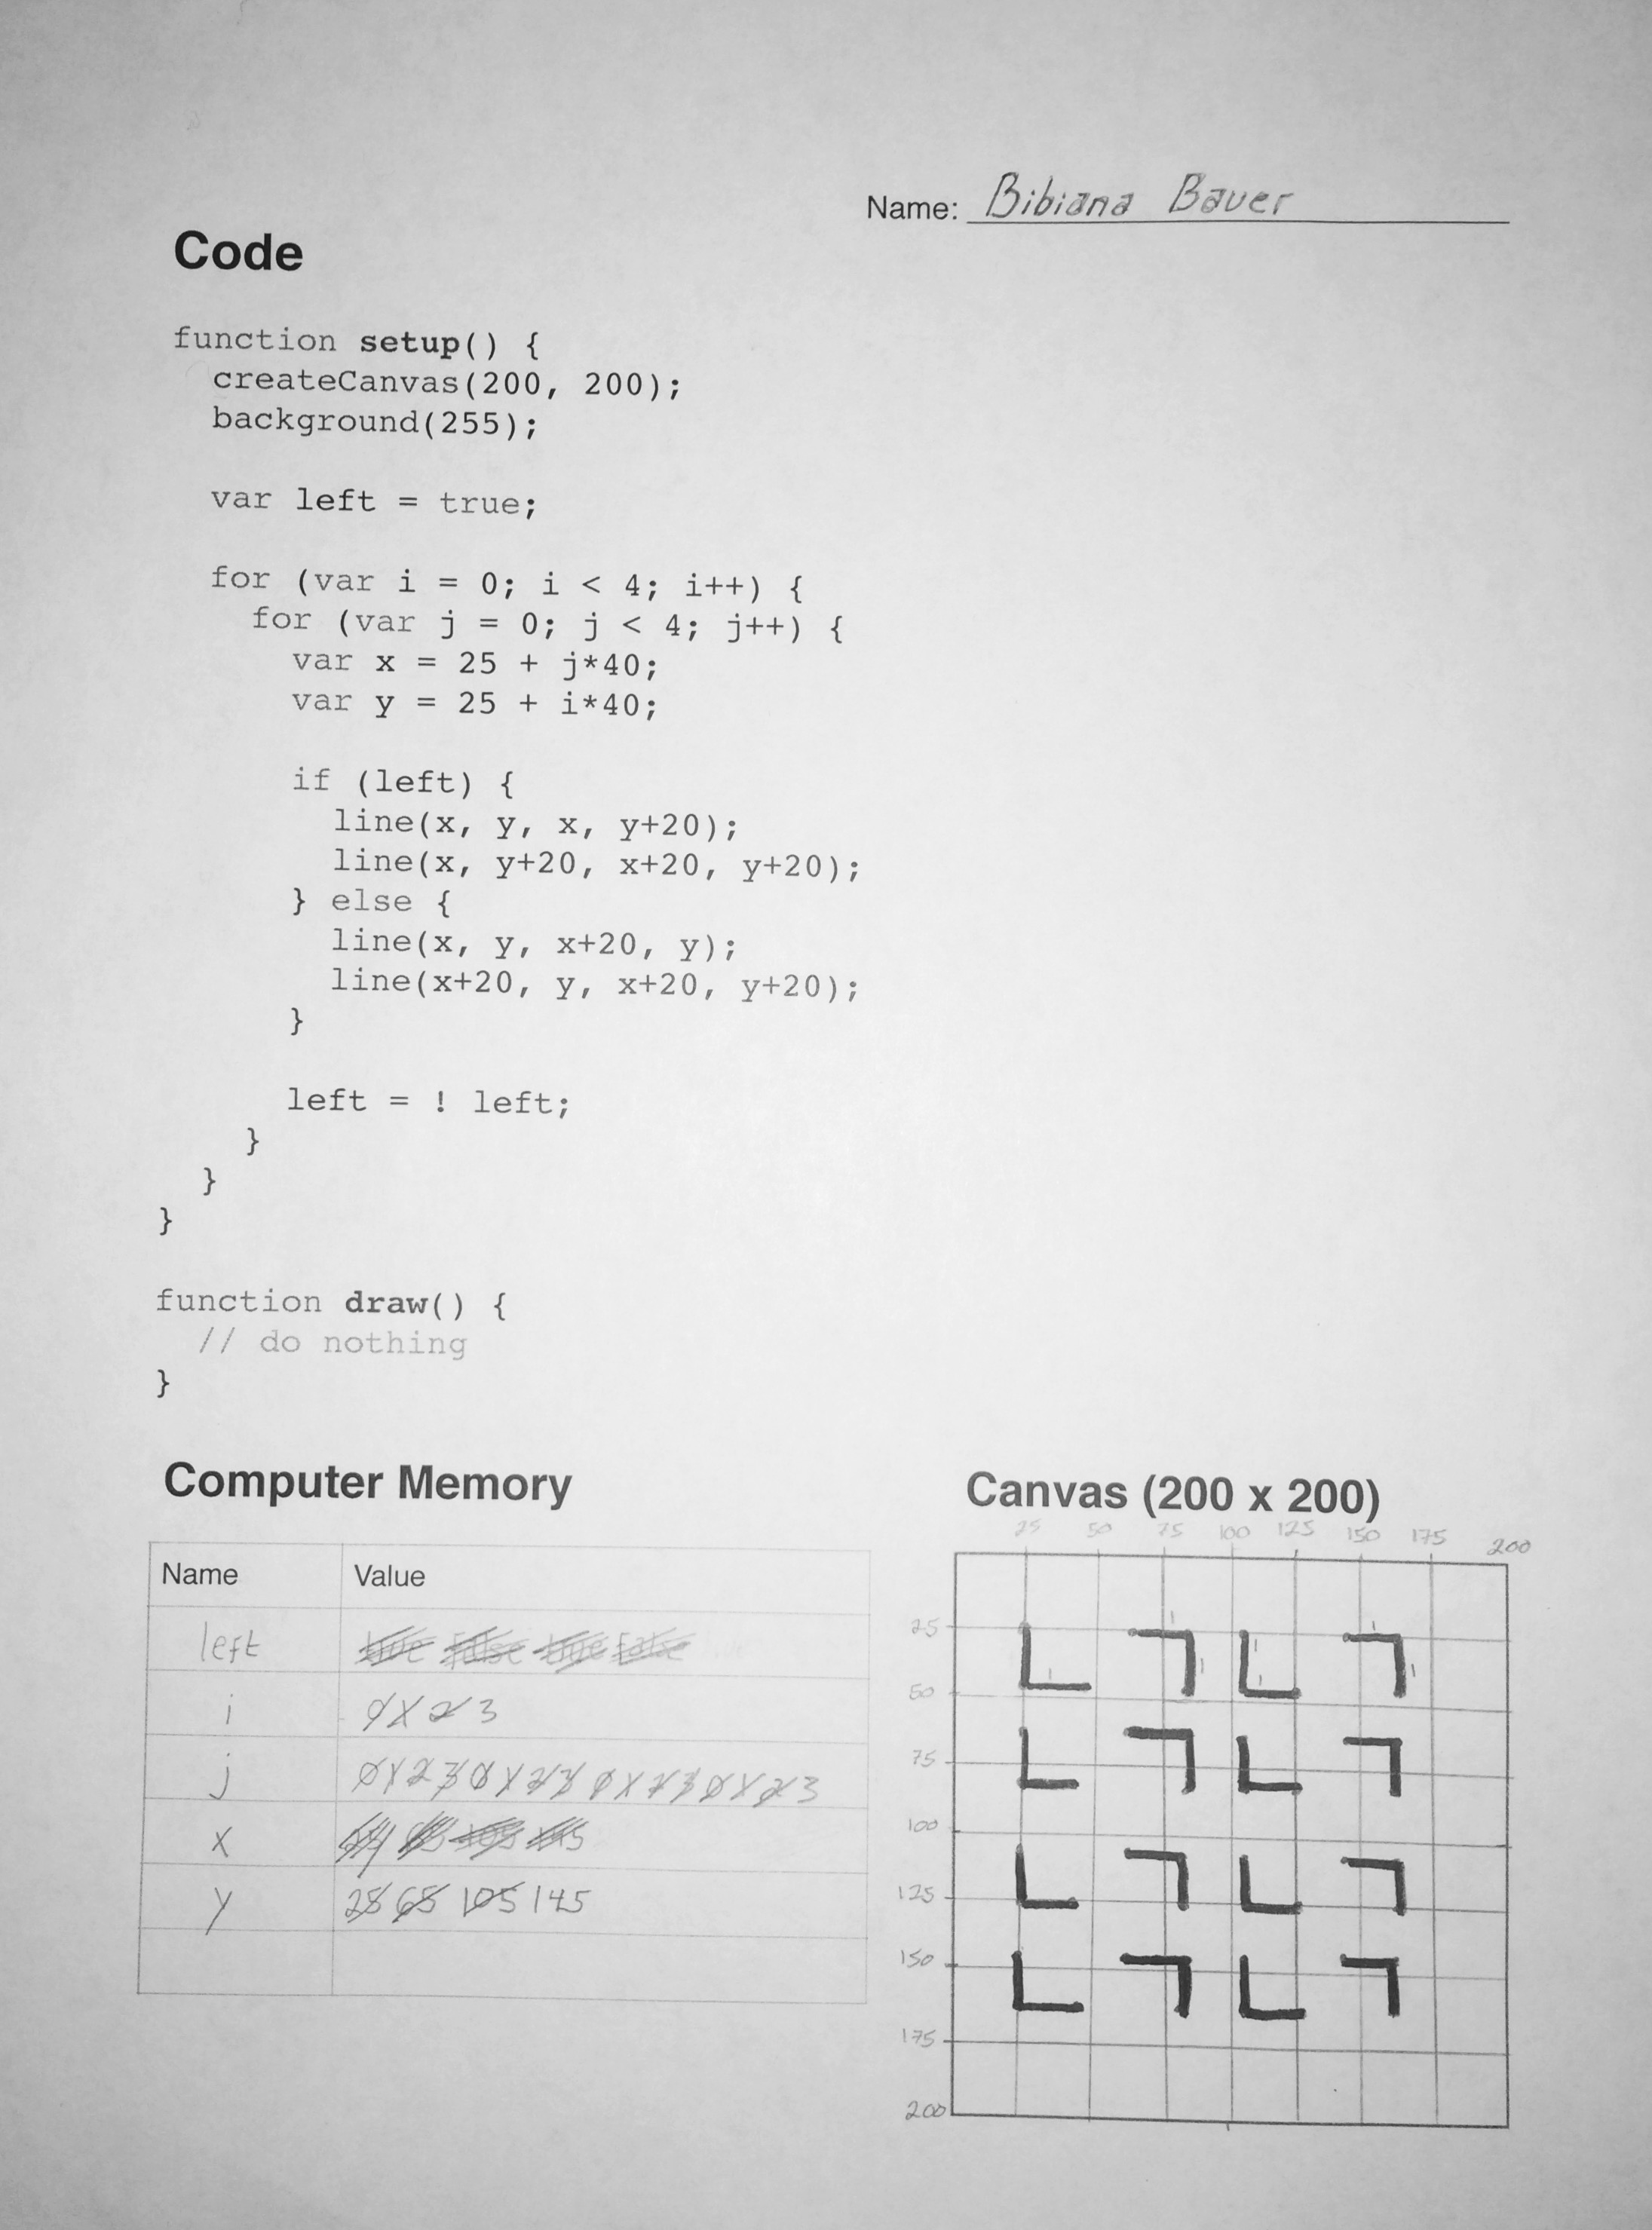 Name: Bibiana Bauer
Code
function setup() {
createCanvas(200, 200);
background(255);
var left = true;
for (var i = 0; i < 4; i++) {
for (var j = 0; j < 4; j++) {
var x = 25 + j*40;
var y = 25 + i*40;
if (left) {
line(x, y, x, y+20);
line(x, y+20, x+20, y+20);
} else {
line(x, y, x+20, y);
line(x+20, y, x+20, y+20);
}
left = ! left;
}
}
}
function draw() {
// do nothing
}
Computer Memory
Name Value
left true false true false
i 0 1 2 3
j 0 1 2 3 0 1 2 3 0 1 2 3 0 1 2 3
x 105 145
y 25 65 105 145
Canvas (200 x 200)
25 50 75 100 125 150 175 200
25
50
75
100
125
150
175
200